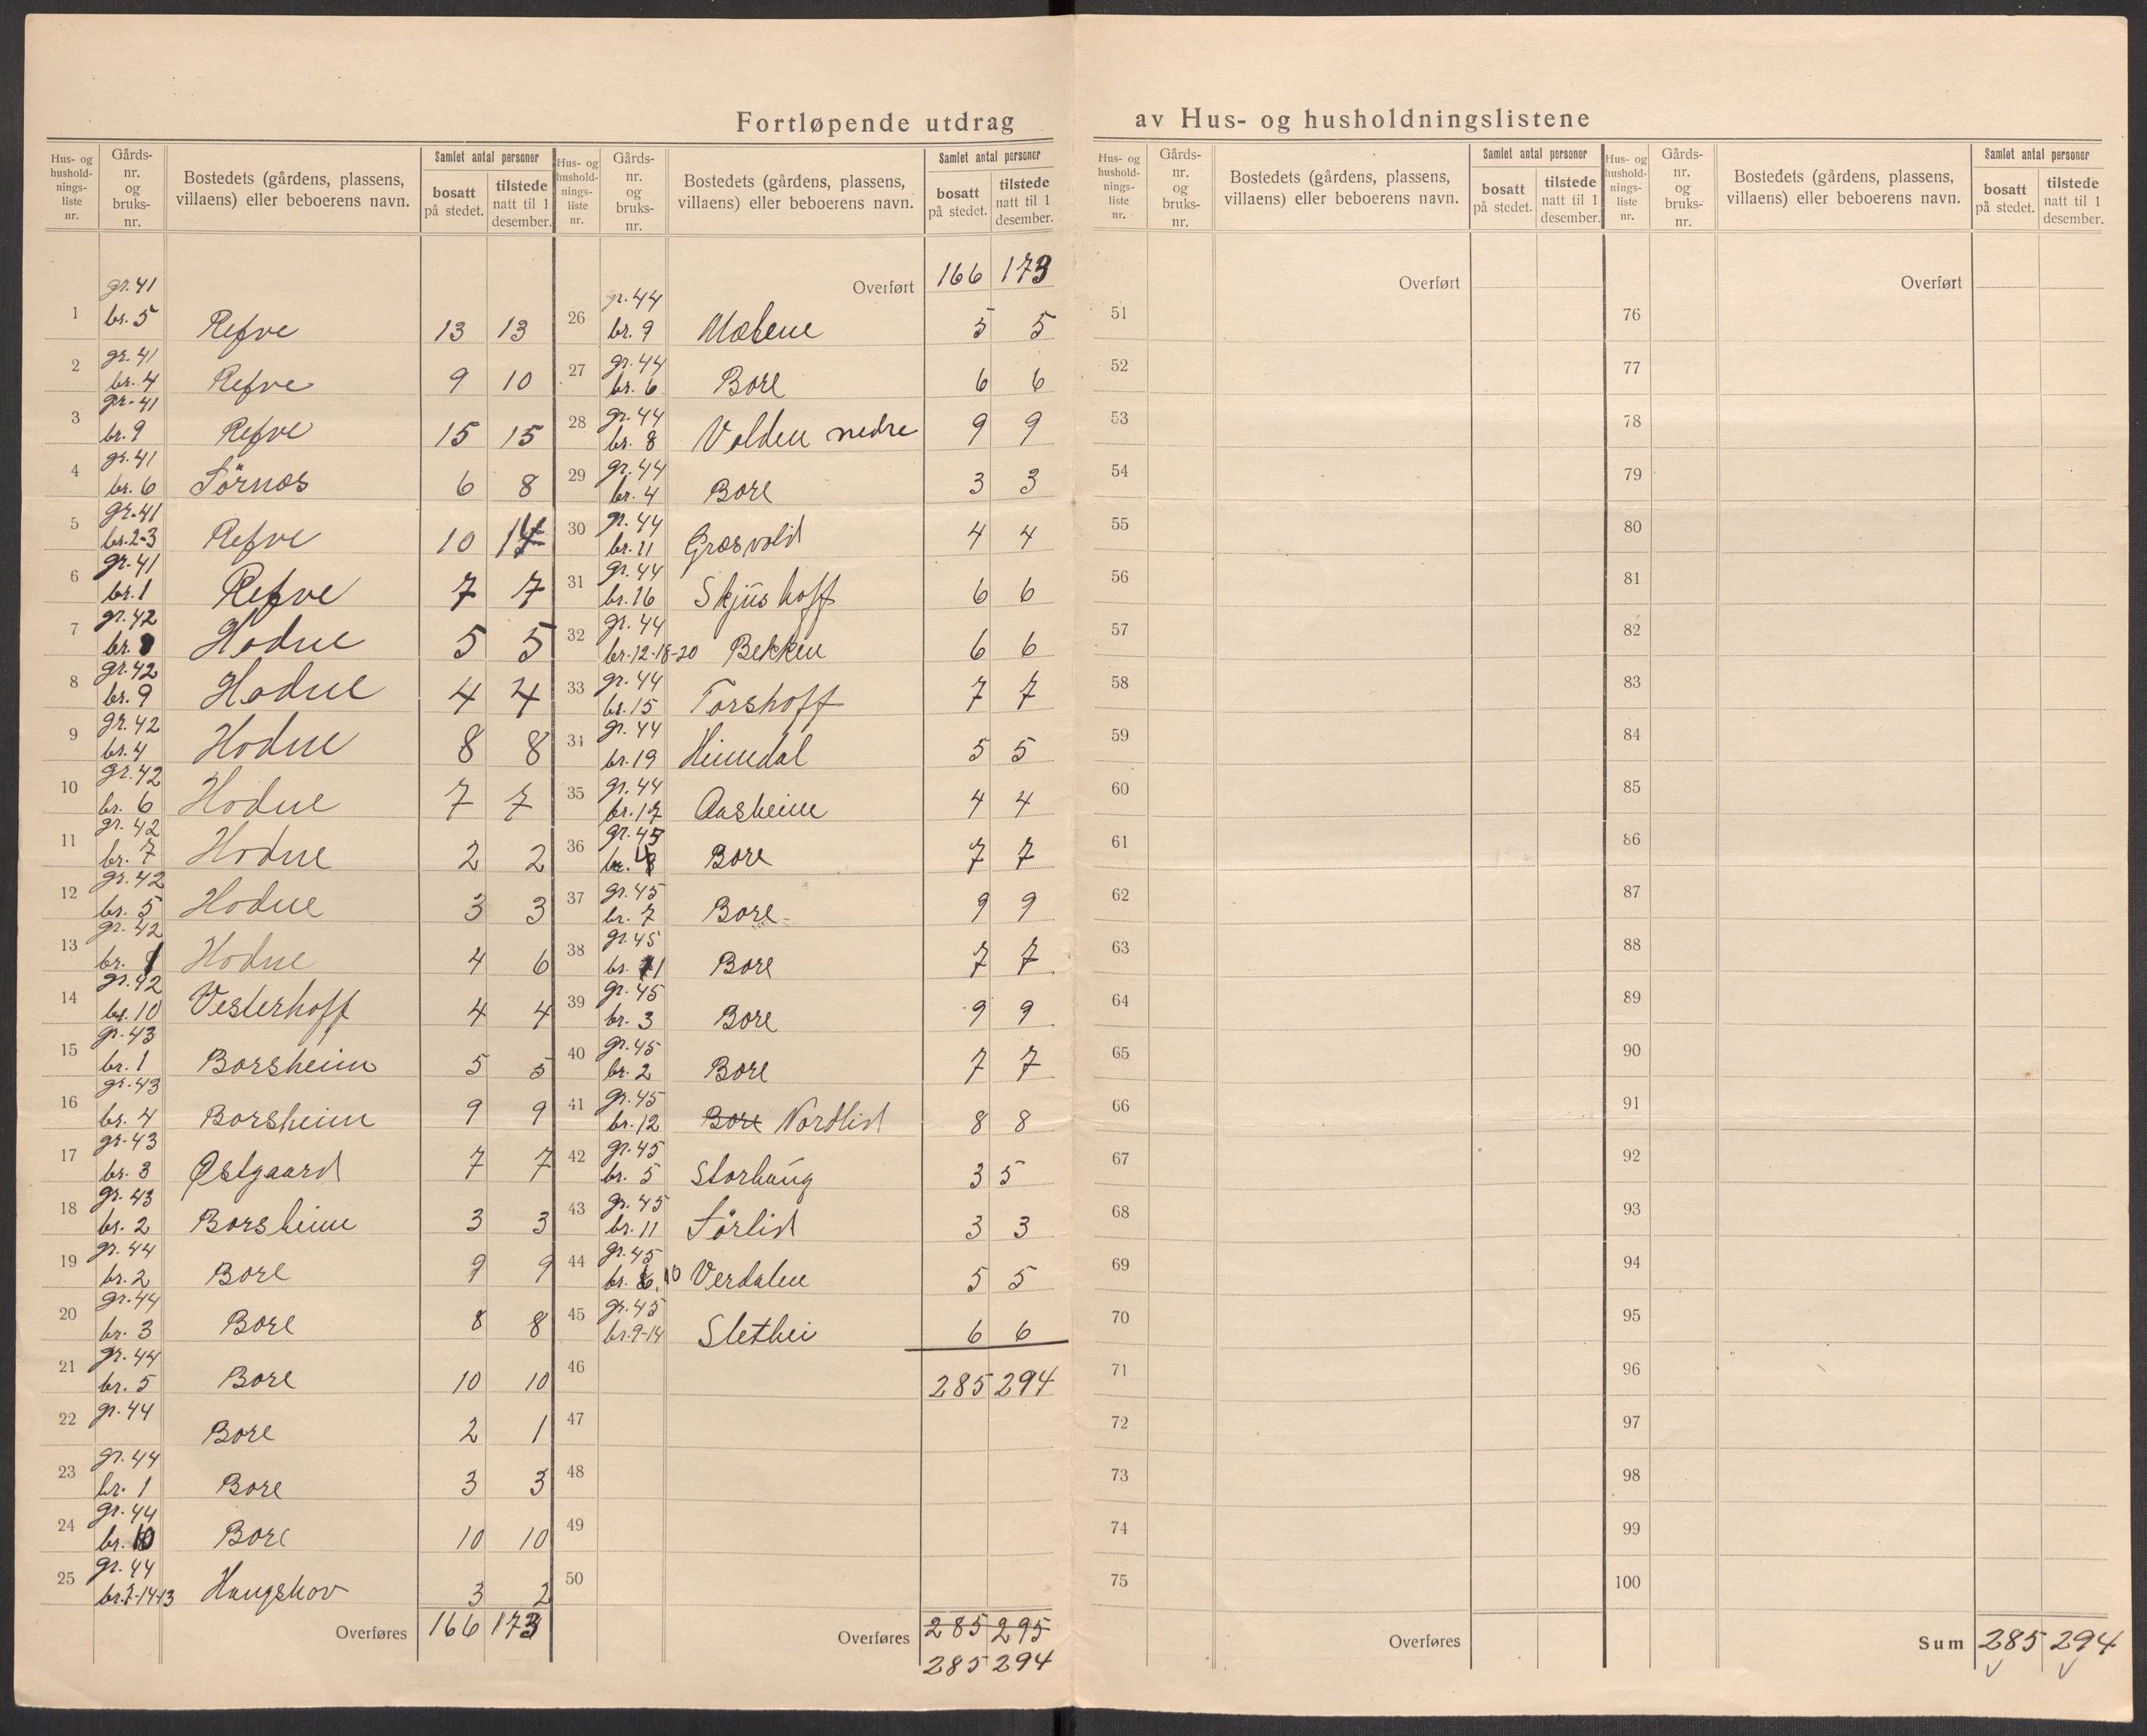 Fortløpende utdrag av Hus- og husholdningslistene
Hus- og hushold- nings- liste nr. | Gårds- nr. og bruks- nr. | Bostedets (gårdens, plassens, villaens) eller beboerens navn. | Samlet antal personer | bosatt på stedet. | tilstede natt til 1 desember.
1 gr. 41 br. 5 Refve 13 13
2 gr. 41 br. 4 Refve 9 10
3 gr. 41 br. 9 Refve 15 15
4 gr. 41 br. 6 Sörnes 6 8
5 gr. 41 br. 2-3 Refve 10 14
6 gr. 41 br. 1 Refve 7 7
7 gr. 42 br. Hodne 5 5
8 gr. 42 br. 9 Hodne 4 4
9 gr. 42 br. 4 Hodne 8 8
10 gr. 42 br. 6 Hodne 7 7
11 gr. 42 br. 7 Hodne 2 2
12 gr. 42 br. 5 Hodne 3 3
13 gr. 42 br. 1 Hodne 4 6
14 gr. 42 br. 10 Vesterhoff 4 4
15 gr. 43 br. 1 Borsheim 5 5
16 gr. 43 br. 4 Borsheim 9 9
17 gr. 43 br. 3 Østgaard 7 7
18 gr. 43 br. 2 Borsheim 3 3
19 gr. 44 br. 2 Bore 9 9
20 gr. 44 br. 3 Bore 8 8
21 gr. 44 br. 5 Bore 10 10
22 gr. 44 Bore 2 1
23 gr. 44 br. 1 Bore 3 3
24 gr. 44 br. 10 Bore 10 10
25 gr. 44 br. 7-14-13 Haugskov 3 2
Overføres 166 173
Hus- og hushold- nings- liste nr. | Gårds- nr. og bruks- nr. | Bostedets (gårdens, plassens, villaens) eller beboerens navn. | Samlet antal personer | bosatt på stedet. | tilstede natt til 1 desember.
Overført 166 173
26 gr. 44 br. 9 5 5
27 gr. 44 br. 6 Bore 6 6
28 gr. 44 br. 8 Volden nedre 9 9
29 gr. 44 br. 4 Bore 3 3
30 gr. 44 br. 11 Græsvold 4 4
31 gr. 44 br. 16 Skjushoff 6 6
32 gr. 44 br. 12-18-20 Bekken 6 6
33 gr. 44 br. 15 Torshoff 7 7
34 gr. 44 br. 19 Heimdal 5 5
35 gr. 44 br. 17 Aasheim 4 4
36 gr. 45 br. 4 Bore 7 7
37 gr. 45 br. 7 Bore 9 9
38 gr. 45 br. 1 Bore 7 7
39 gr. 45 br. 3 Bore 9 9
40 gr. 45 br. 2 Bore 7 7
41 gr. 45 br. 12 Bore Nordlid 8 8
42 gr. 45 br. 5 Storhaug 3 5
43 gr. 45 br. 11 Sörlid 3 3
44 gr. 45 br. 6, 10 Verdalen 5 5
45 gr. 45 br. 9-14 Slethei 6 6
46 285 294
47
48
49
50
Overføres 285 295
285 294
Hus- og hushold- nings- liste nr. | Gårds- nr. og bruks- nr. | Bostedets (gårdens, plassens, villaens) eller beboerens navn. | Samlet antal personer | bosatt på stedet. | tilstede natt til 1 desember.
Overført
51
52
53
54
55
56
57
58
59
60
61
62
63
64
65
66
67
68
69
70
71
72
73
74
75
Overføres
Hus- og hushold- nings- liste nr. | Gårds- nr. og bruks- nr. | Bostedets (gårdens, plassens, villaens) eller beboerens navn. | Samlet antal personer | bosatt på stedet. | tilstede natt til 1 desember.
Overført
76
77
78
79
80
81
82
83
84
85
86
87
88
89
90
91
92
93
94
95
96
97
98
99
100
Sum 285 294